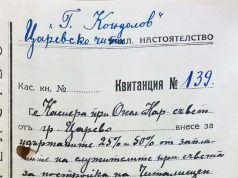 „Г. Кондолов"
Царевско читал. НАСТОЯТЕЛСТВО
Кас. кн. № Квитанция № 139.
Се Касиера при Окол. Нар. съвет
от гр. Царево внесе за
удържаните 25% и 50% от запла-
те на служителите при съвета
за постройка на Читалищен